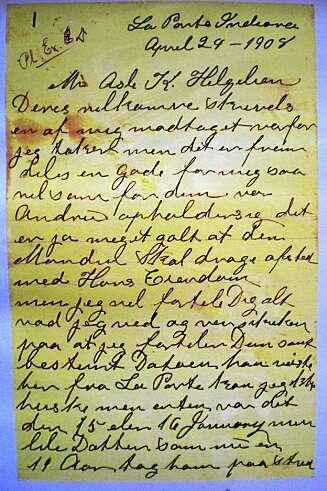 1
Pl. Ex.
La Porte Indiana
April 29 - 1908
Mr Asle K. Helgelien
Deres velkomne skrivels
en af mig modtaget varfor
jeg takker men det er frem
deles en Gade for mig saa
vel som for dem vor
Andrew opholder sig det
er ja meget galt at den
Mand skal drage afsted
med Hans Eiendom
men jeg vil fortele Dig alt
vad jeg ved og ver sikker
paa at jeg forteler Dem sant
bestemt Datoen han reiste
her fra La Porte kan jeg ikke
huske men enten var det
den 15 eler 16 January min
lile Datter som nu er
11 Aar tog ham paa